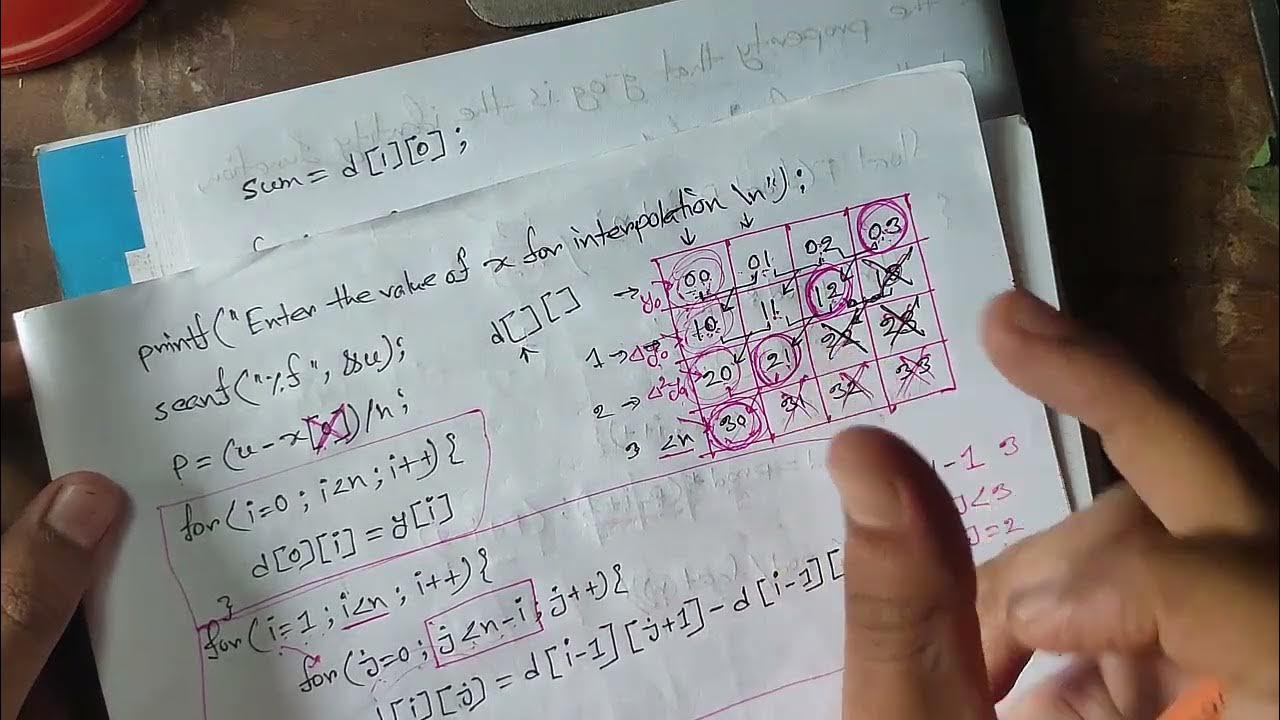 sum = d[i][0];
printf("Enter the value of x for interpolation \n");
scanf("%f", &u);
p = (u - x[0])/h;
for(i=0; i<n; i++){
d[0][i] = y[i]
}
for(i=1; i<n; i++){
for(j=0; j<n-i; j++){
d[i][j] = d[i-1][j+1] - d[i-1][
d[][]
→ y0 00 01 02 03
1 → Δy0 10 11 12 13
2 → Δ²y0 20 21 22 23
3 <n 30 31 32 33
-1 3
j<3
j=2
property that gog is the identity function